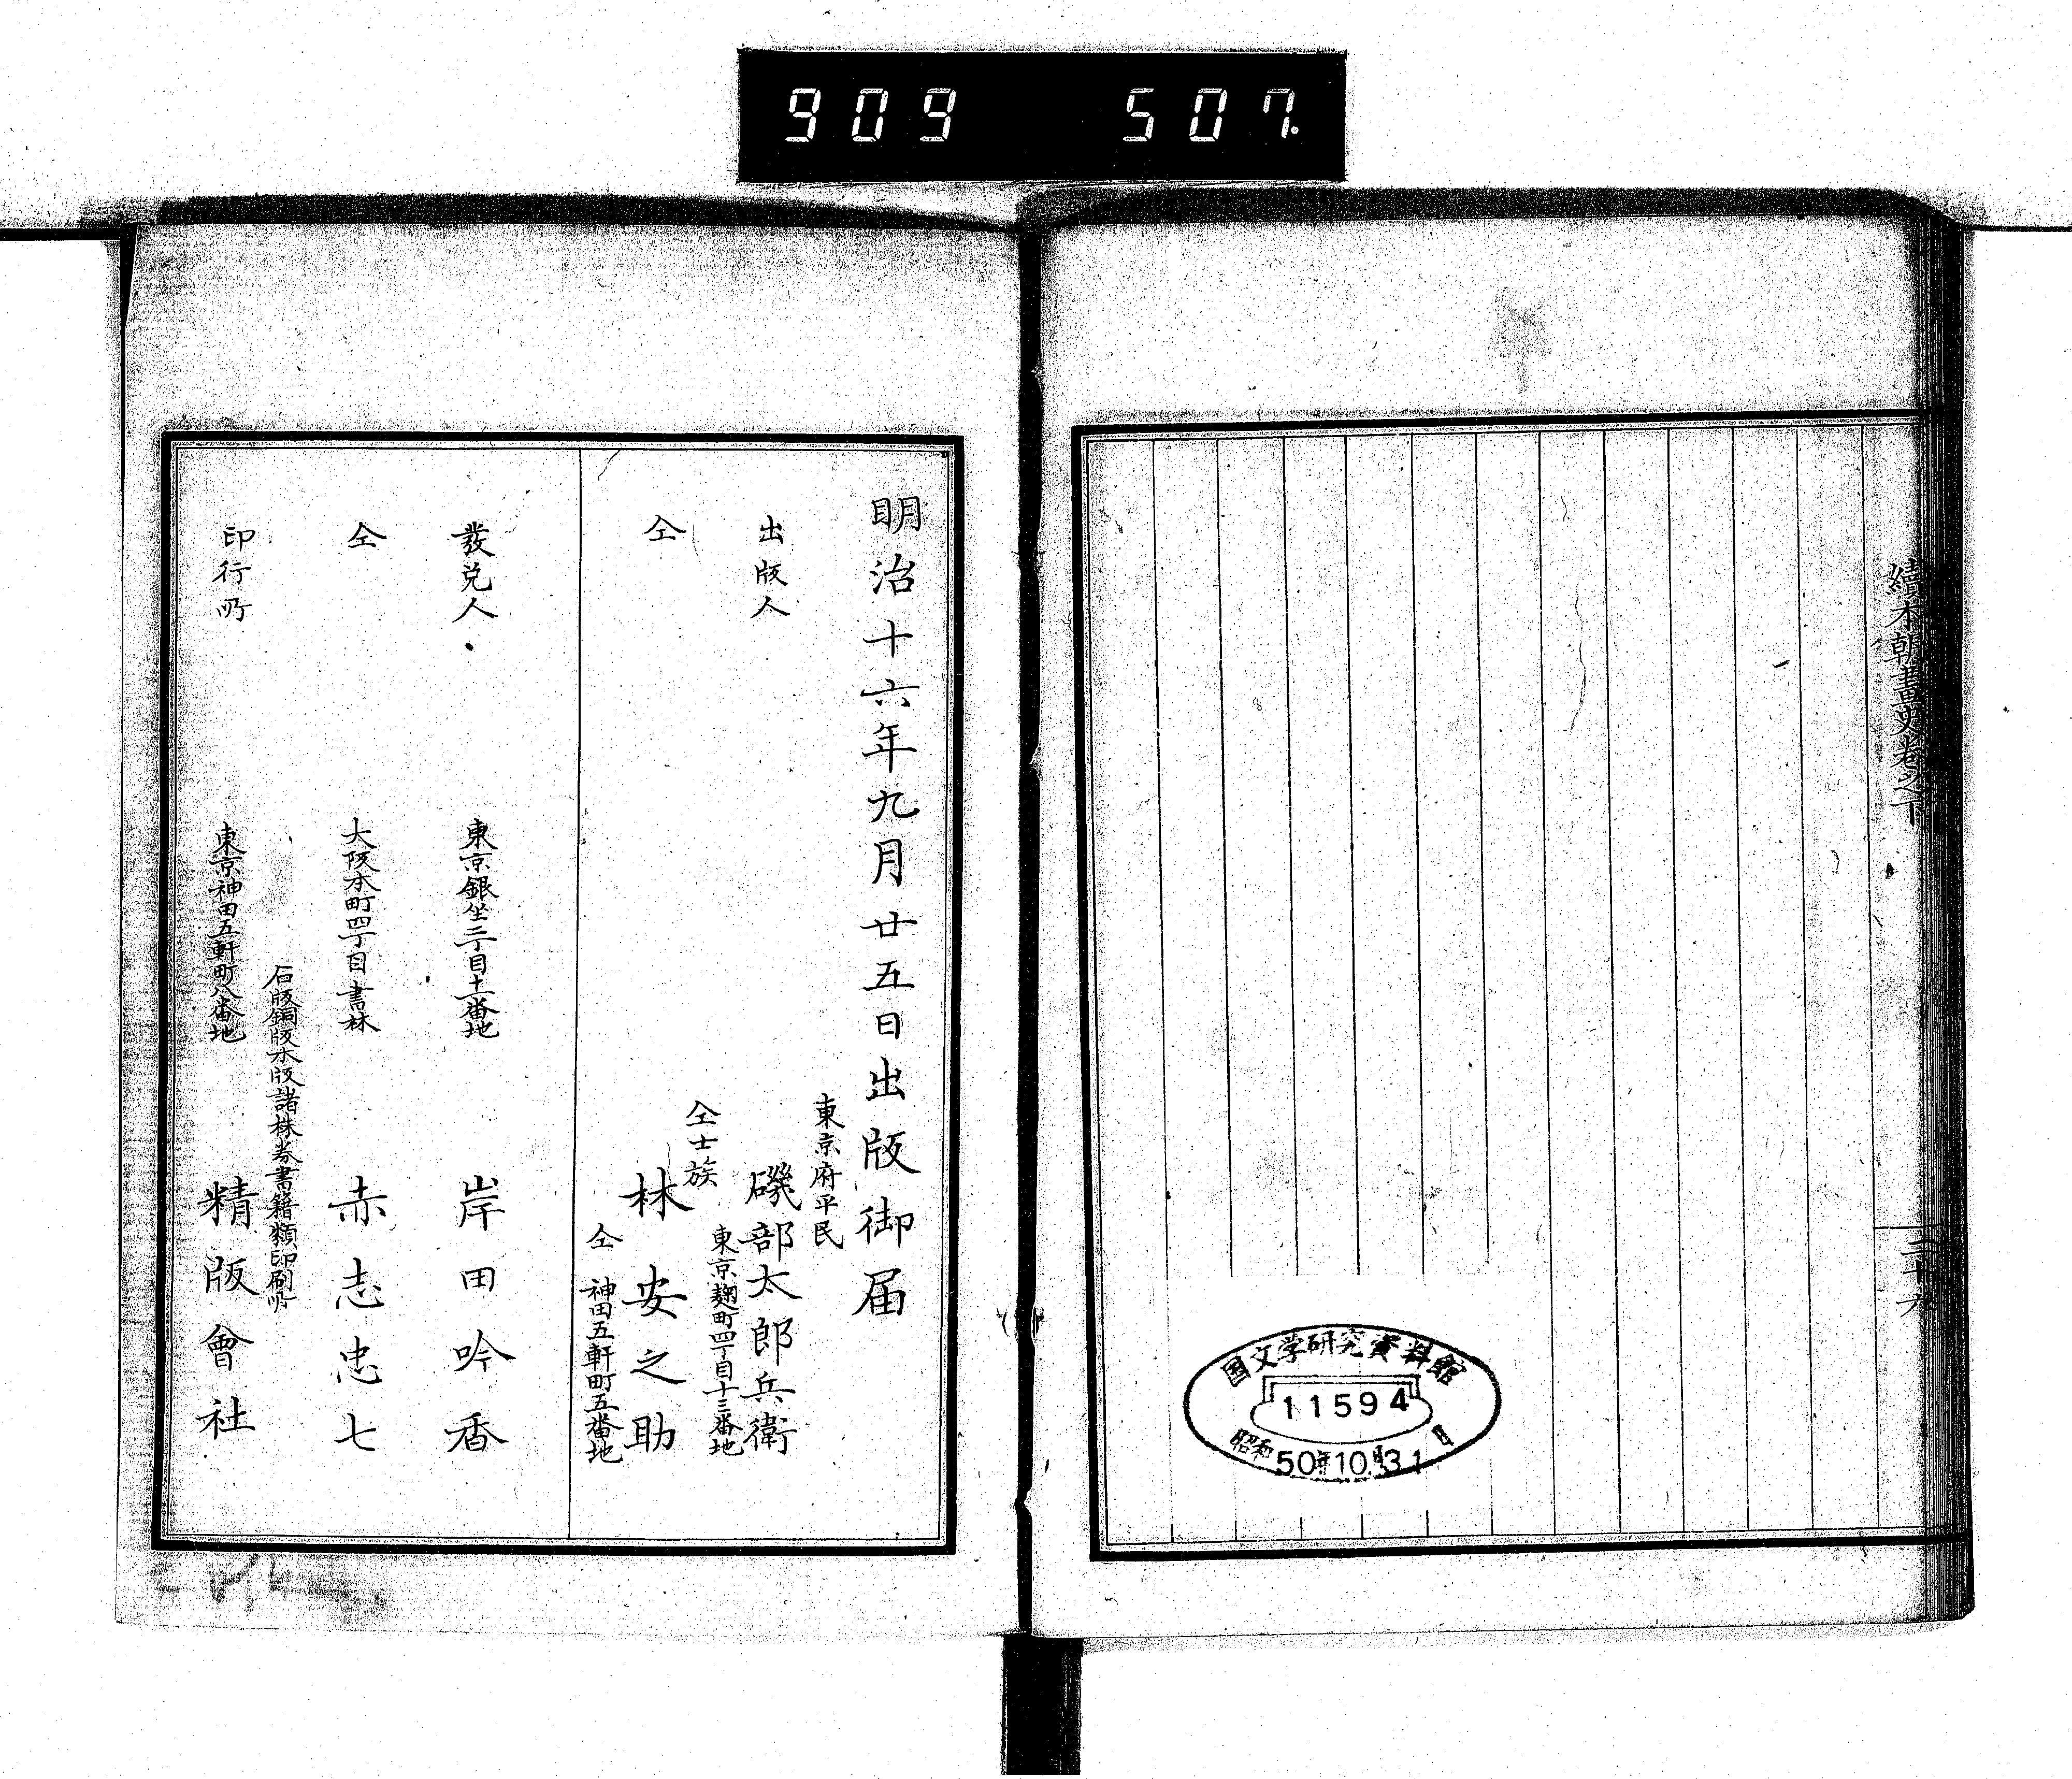 909 507.
續本朝畫史卷之下
二十六
国文学研究資料館
11594
昭和50年10月31日
明治十六年九月廿五日出版御届
東京府平民
出版人 磯部太郎兵衛
東京麹町四丁目十三番地
仝士族
仝 林安之助
仝 神田五軒町五番地
發兑人 東京銀坐二丁目十一番地 岸田吟香
仝 大阪本町四丁目書林 赤志忠七
石版銅版木版諸株券書籍類印刷所
印行所 東京神田五軒町八番地 精版會社